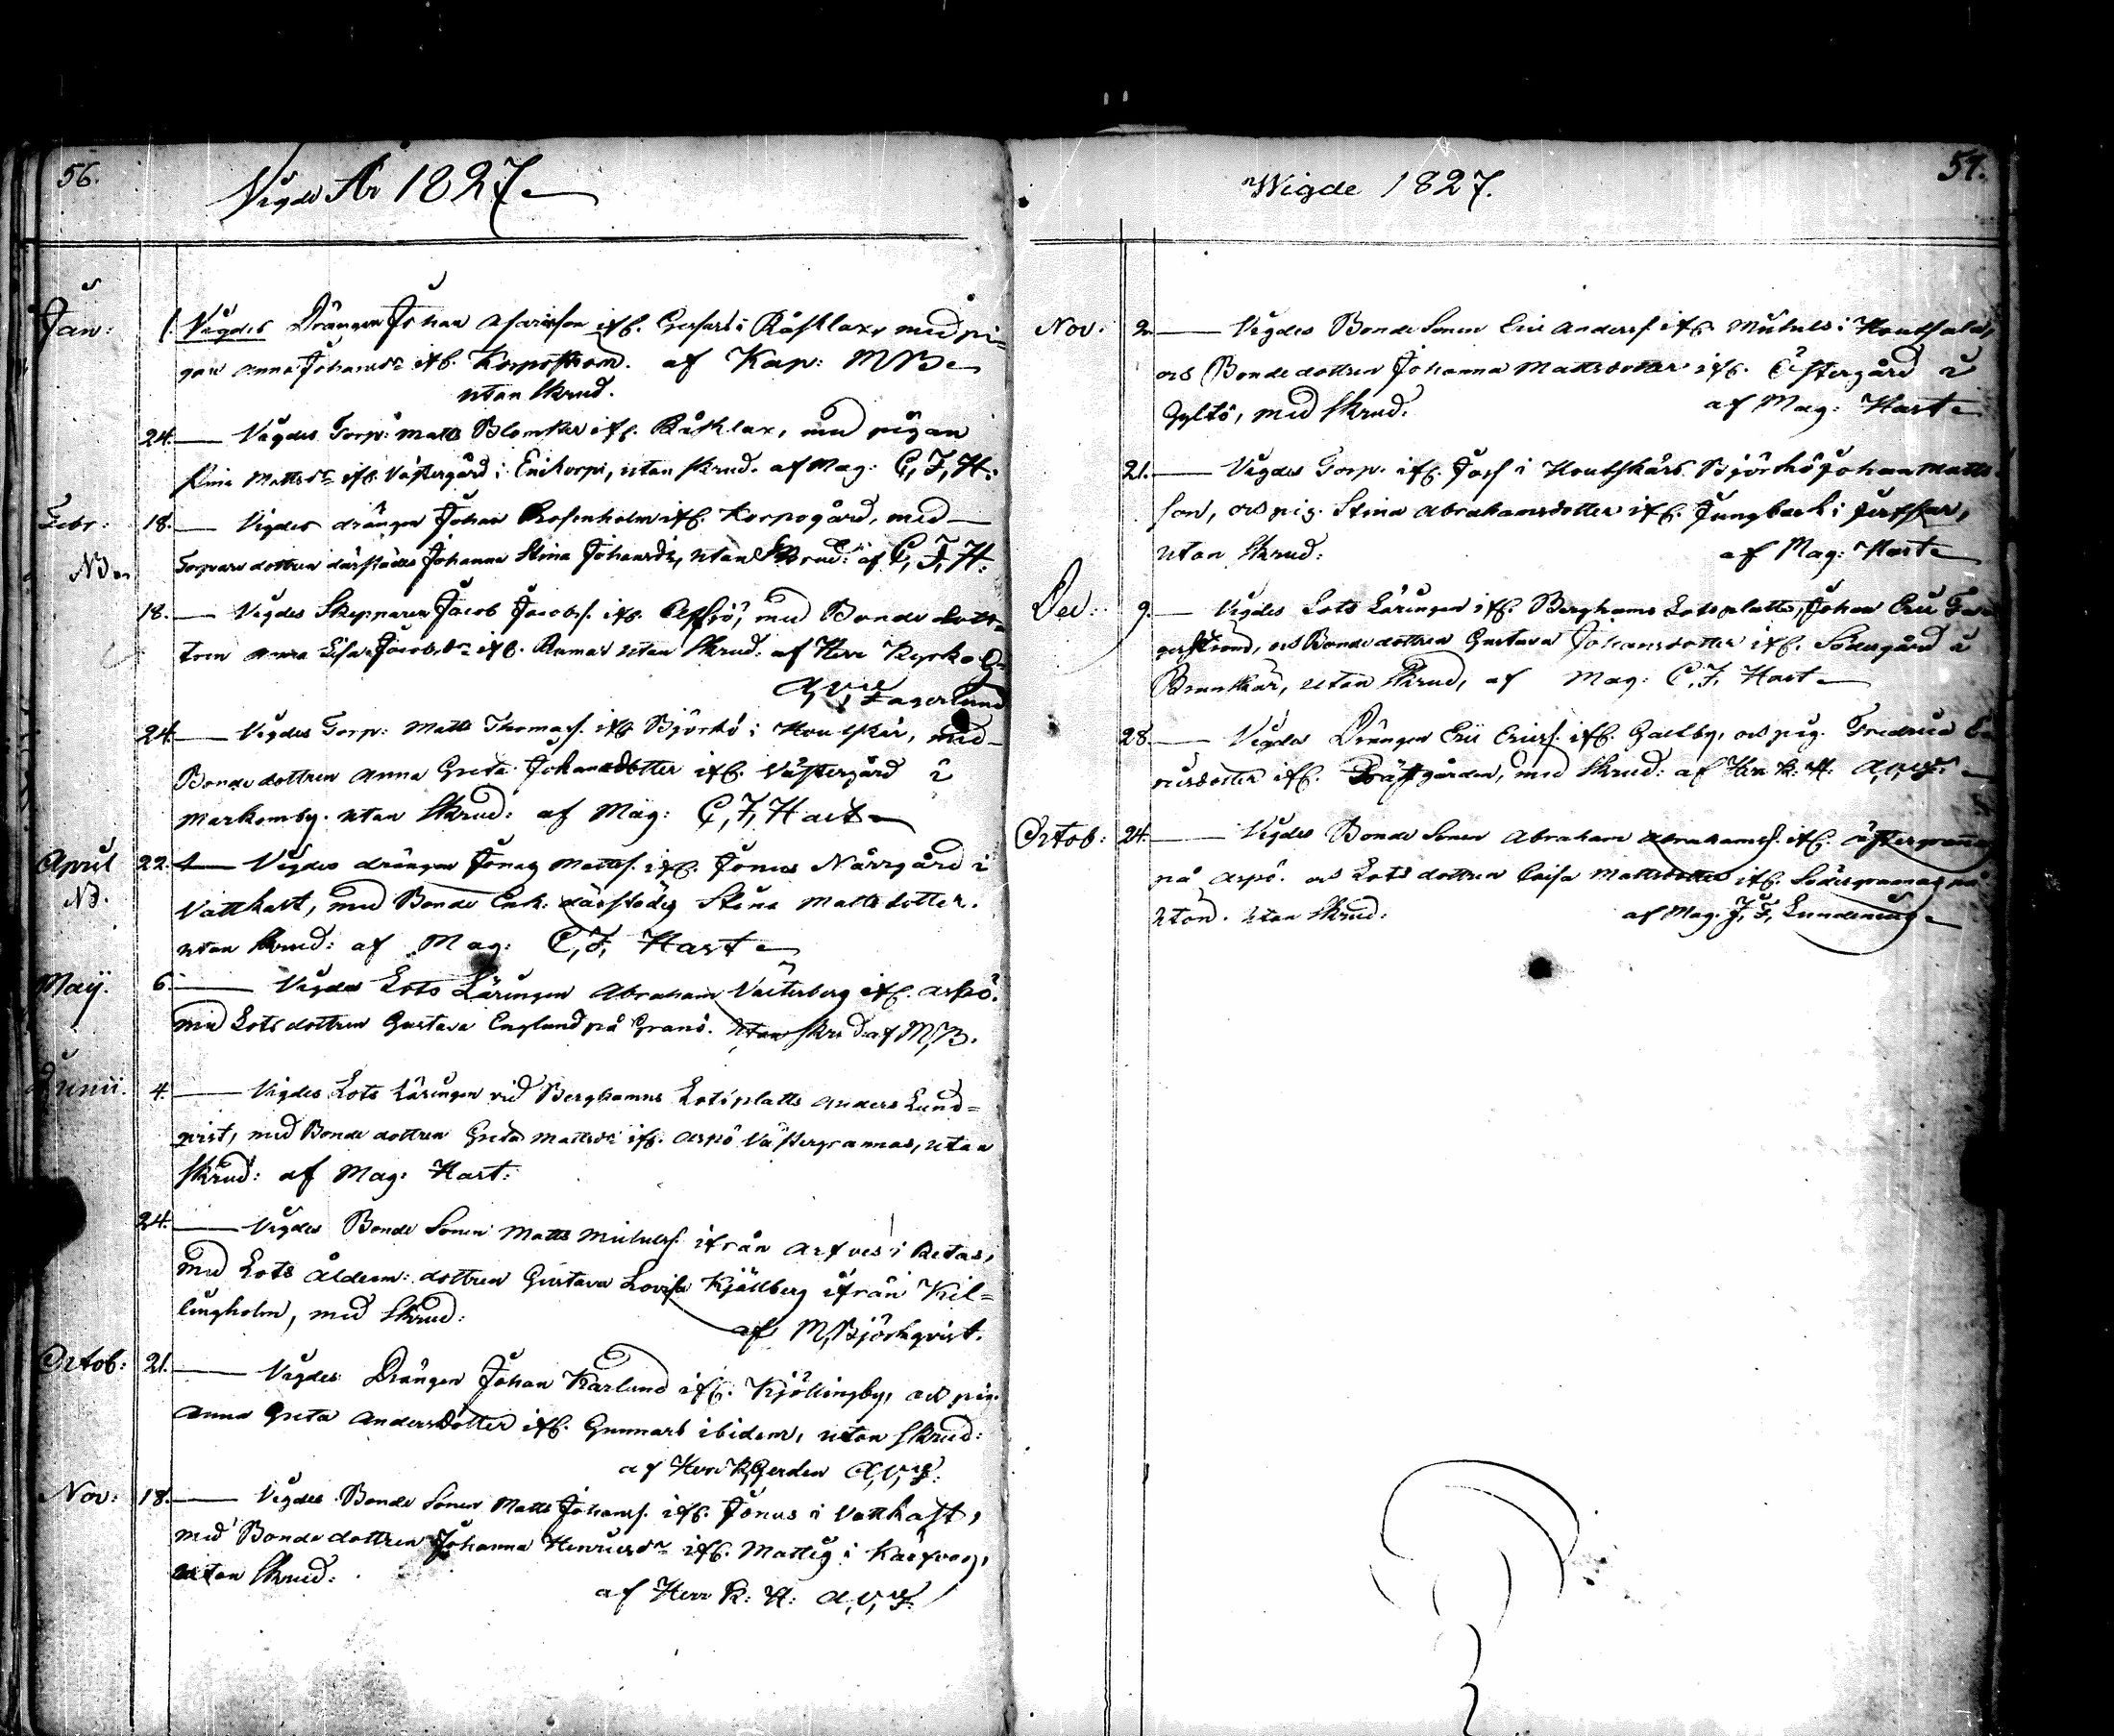 56.
Vigde År 1827
Jan: 1. Vigdes Drängen Johan ifr. i Råsklax, med pi=
gan Anna Johansdr ifr. Korpoström. af Kap: MB
utan Skrud.
24. Vigdes Torp: Matts Blomster ifr. Råsklax, med pigan
Mattsdr ifr. Västergård i Enikorpi, utan Skrud. af Mag: C, F, H.
Febr: 18. Vigdes drängen Johan Rosenholm ifr. Korpogård, med
NB. Torpare dottren därstädes Johanna Stina Johansdr, utan Skrud: af C, F, H.
18. Vigdes Skepparen Jacob Jacobs. ifr. med Bonde dott=
tren Anna Lisa Jacobsdr ifr. Rumar utan Skrud: af Herr Kyrkoh=
Fagerlund
24. Vigdes Torp: Matts Thomass. ifr Björkö i Houtskär, med
Bonde dottren Anna Greta Johansdotter ifr. Västergård i
Markomby. utan Skrud: af Mag: C, F, Hart
April 22. Vigdes drängen Jonas Mattss. ifr. Jonas Närrgård i
NB. Vattkast, med Bonde Enk: därstädes Stina Mattsdotter.
utan Skrud: af Mag: C, F, Hart
Maij. 6. Vigdes Lots Läringen Abraham Västerberg ifr. Aspö.
med Lots dottren Gustava Englund på Granö. utan skrud af M, B.
Junii. 4. Vigdes Lots Läringen vid Berghamns Lotsplatts Anders Lund=
qvist, med Bonde dottren Greta Mattsdr ifr. Aspö Västergrannas, utan
Skrud: af Mag: Hart:
24. Vigdes Bonde Sonen Matts Michels. ifrån Arfves i Retas,
med Lots Ålderm: dottren Gustava Lovisa Kjällberg ifrån Kil=
lingholm, med Skrud:
af M, Björkqvist.
Octob: 21. Vigdes Drängen Johan Karlund ifr. Kjöttingby, och pig.
Anna Greta Andersdotter ifr. Gunnars ibidem, utan Skrud:
af Herr Kyrkoherden A, V, F.
Nov: 18. Vigdes Bonde Sonen Matts Johans. ifr. Jonas i Vattkast,
med Bonde dottren Johanna Henricsdr ifr. Mattis i
utan Skrud:
af Herr K: H: A, V, F.
57.
Wigde 1827.
Nov: 2. Vigdes Bonde Sonen Eric Anderss. ifr. Michels i
och Bonde dottren Johanna Mattsdotter ifr. Östergård i
Gyltö, med Skrud. af Mag: Hart
21. Vigdes Torp. ifr. i Houtskärs Björkö Johan Matts
son, och pig. Stina Abrahamsdotter ifr. Jungback i
utan Skrud: af Mag: Hart
Dec: 9. Vigdes Lots Läringen ifr. Berghams Lotsplatts, Johan Eric
och Bonde dottren Gustava Johansdotter ifr. Södergård i
Brunskär, utan Skrud, af Mag: C, F, Hart
28. Vigdes Drängen Eric Erics. ifr. Galtby, och pig. Fredrica
ricsdotter ifr. Prästgården, med Skrud: af Herr K: H. A, V, F.
Octob: 24. Vigdes Bonde Sonen Abraham Abrahams. ifr. Östergranna
på Aspö. och Lots dottren Caisa Mattsdotter ifr. Södergrannas på
Utön. Utan Skrud: af Mag. J, F,